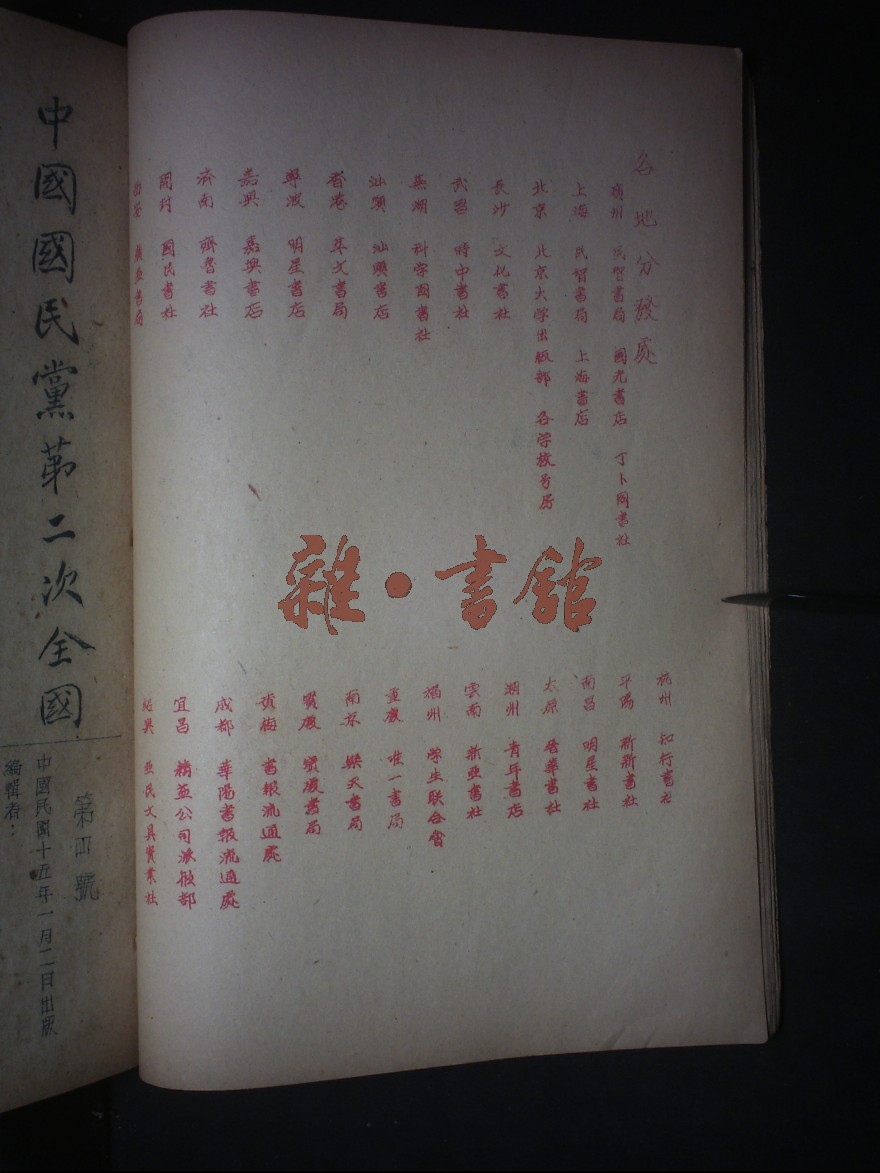 各地分發處
廣州 民智書局 國光書店 丁卜圖書社
上海 民智書局 上海書店
北京 北京大学出版部 各学校号房
長沙 文化書社
武昌 時中書社
蕪湖 科学図書社
汕頭 汕頭書店
香港 萃文書局
寧波 明星書店
嘉興 嘉興書店
濟南 齊魯書社
開封 國民書社
亚書局
杭州 知行書社
平陽 新新書社
南昌 明星書社
太原 晋華書社
潮州 青年書店
雲南 新亜書社
福州 学生联合會
重慶 唯一書局
南京 樂天書局
寶慶 寶慶書局
黄梅 書報流通處
成都 華陽書報流通處
宜昌 精益公司派報部
紹興 亜民文具實業社
雜·書館
中國國民黨第二次全國
第四號
中國民國十五年一月二日出版
編輯者：